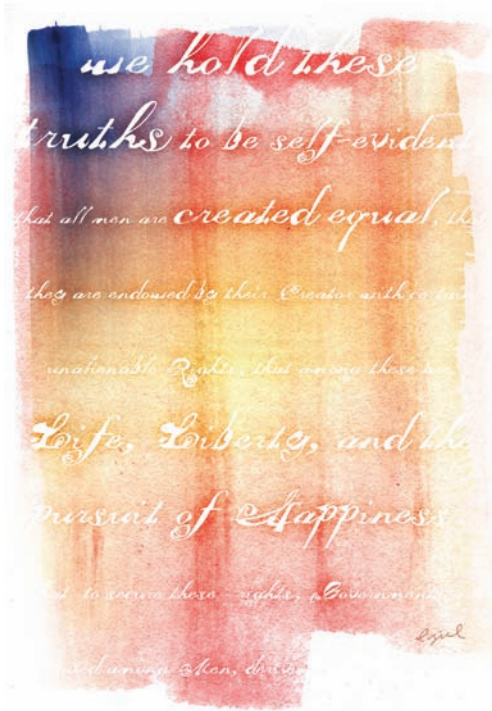 we hold these
truths to be self-evident
that all men are created equal,
they are endowed by their Creator with certain
unalienable Rights, that among these are
Life, Liberty, and th
pursuit of Happiness
to secure these rights, Governments
among Men, de